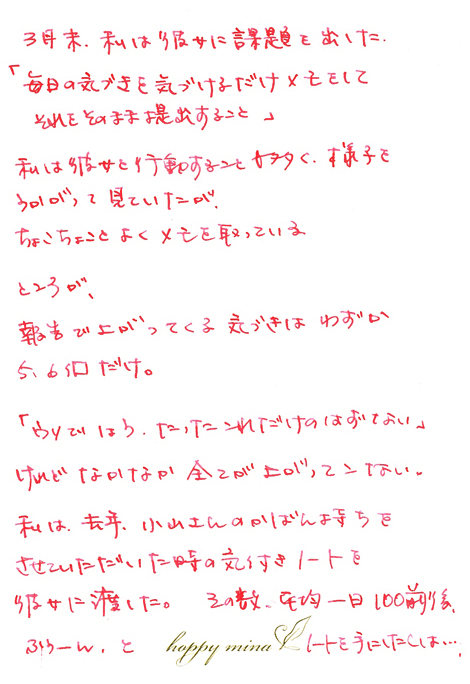 3月末、私は彼女に課題を出した。
「毎日の気づきを気づけるだけメモをして
それをそのまま提出すること」
私は彼女と行動すること多く、様子を
うかがって見ていたが、
ちょこちょことよくメモを取っている
ところが、
報告で上がってくる気づきは わずか
5、6個だけ。
「ウソでしょう、たったこれだけのはずない」
けれど なかなか全てが上がってこない。
私は、去年、小山さんのかばん持ちを
させていただいた時の気づきノートを
彼女に渡した。 その数、平均一日100前後、
ふぅーん、と happy mina ノートを手にした